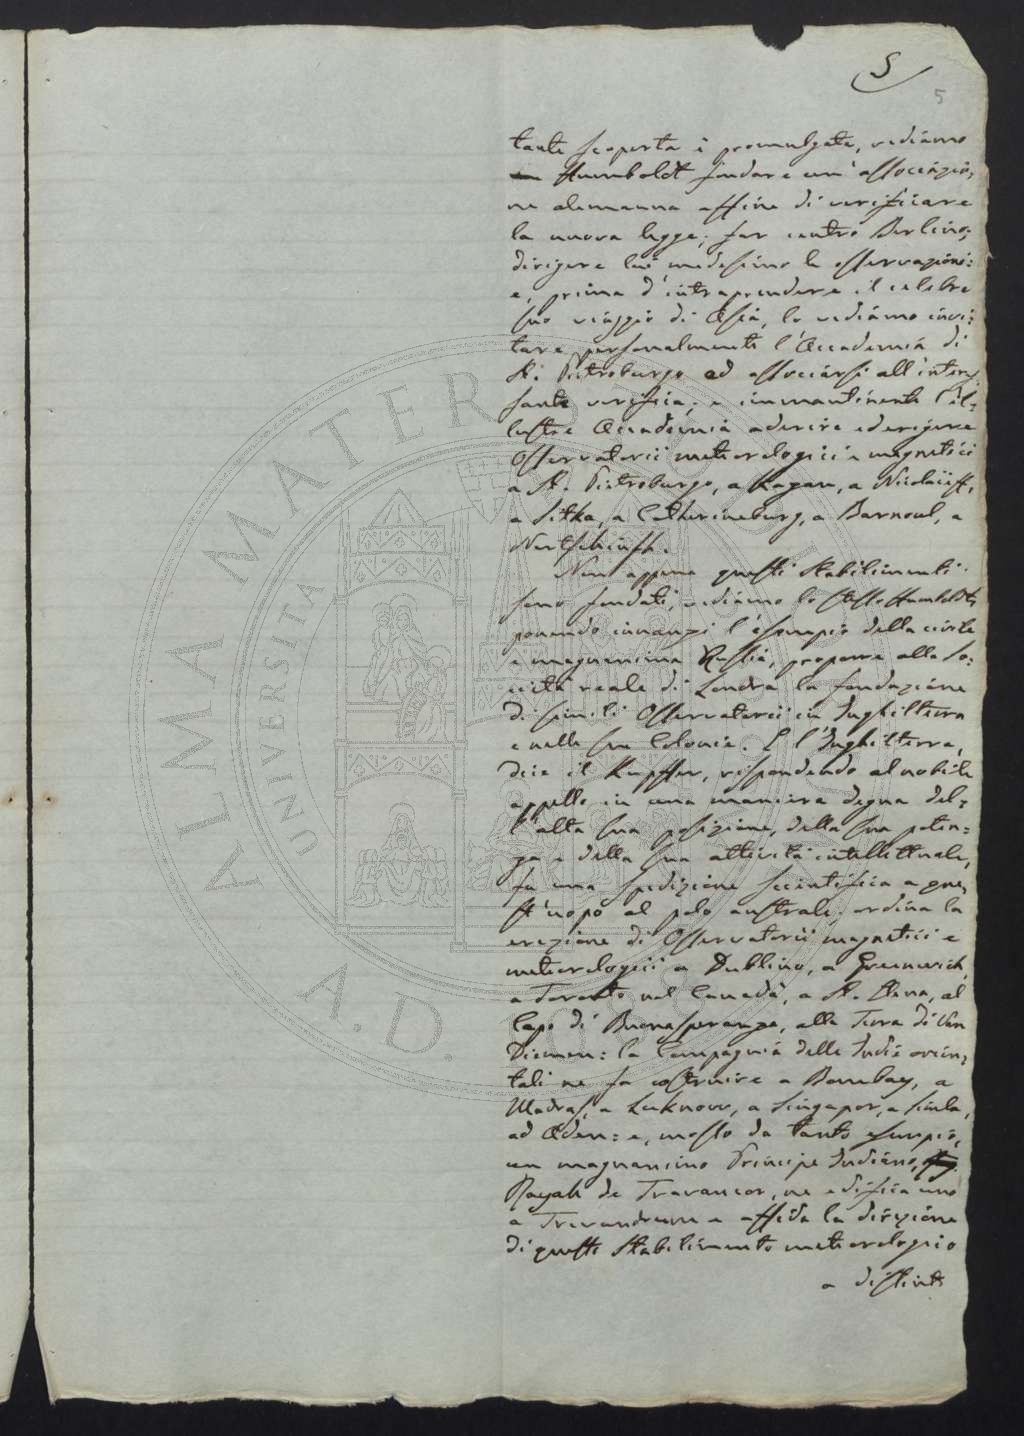 5
5
tante scoperta è promulgata, vediamo
Humboldt fondare un'associazio-
ne alemanna affine di verificare
la nuova legge; far centro Berlino;
dirigere lui medesimo le osservazioni:
e, prima d'intraprendere il celebre
suo viaggio di Asia, lo vediamo invi-
tare personalmente l'Accademia di
St. Pietroburgo ad associarsi all'interes-
sante verifica; e immantinenti l'il-
lustre Accademia aderire ed erigere
Osservatorii meteorologici e magnetici
a St. Pietroburgo, a Kazan, a Nicolaieff,
a Sitka, a Catherineburg, a Barnoul, a
Nertschinsk.
Non appena questi stabilimenti
sono fondati, vediamo lo stesso Humboldt,
ponendo innanzi l'esempio della civile
e magnanima Russia, proporre alla So-
cietà reale di Londra la fondazione
di simili Osservatorii in Inghilterra
e nelle sue Colonie. E l'Inghilterra,
dice il Kupffer, rispondendo al nobile
appello in una maniera degna del-
l'alta sua posizione, della sua poten-
za e della sua attività intellettuale,
fa una spedizione scientifica a que-
st'uopo al polo australe; ordina la
erezione di Osservatorii magnetici e
meteorologici a Dublino, a Greenwich,
a Toronto nel Canadà, a St. Elena, al
Capo di Buonasperanza, alla Terra di Van
Diemen: la Compagnia delle Indie orien-
tali ne fa costruire a Bombay, a
Madras, a Luknow, a Singapor, a Simla,
ad Aden: e, mosso da tanto esempio,
un magnanimo Principe Indiano,
Rayah de Travancor, ne edifica uno
a Trevandrum e affida la direzione
di questo stabilimento meteorologico
a distinto
ALMA MATER STUDIORUM
UNIVERSITÀ
A.D.